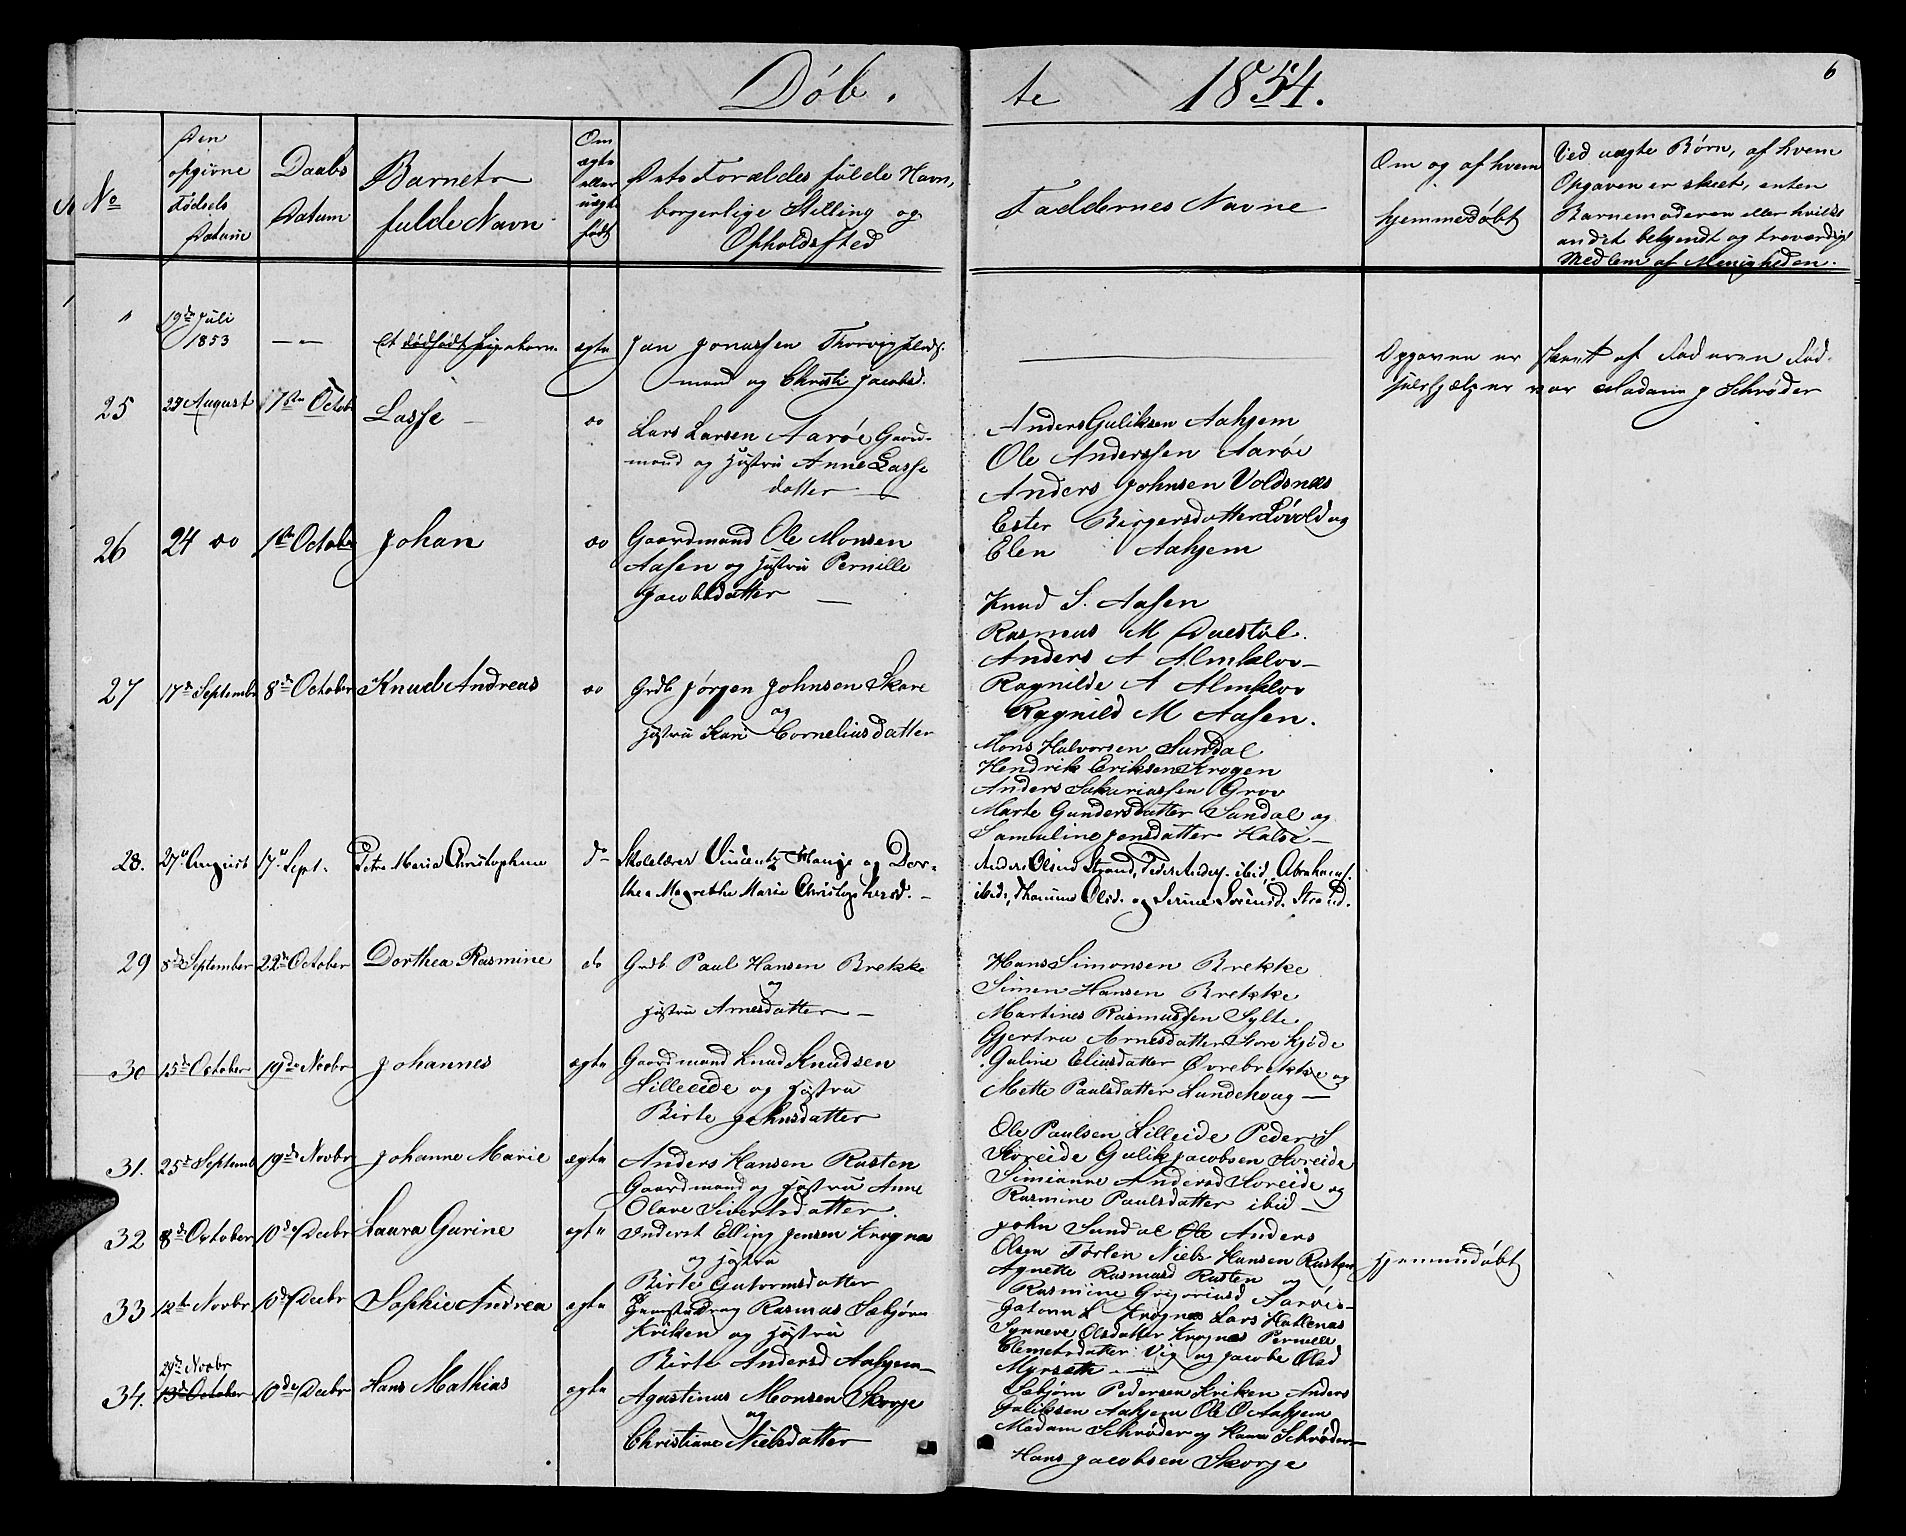 Døb.
te 1854.
6
No
Den opgivne Fødsels Datum
Daabs Datum
Barnets fulde Navn
Om ægte eller uægte født
Dets Forældes fulde Navn, borgerlige Stilling og Opholdssted
Faddernes Navne
Om og af hvem hjemmedøbt
Ved uægte Børn, af hvem
Opgaven er skeet, enten
Barnemoderen eller hvilke
andet bekjendt og troværdigt
Medlem af Menigheden.
" 19de Juli 1853 — " — et dødfødt Pigebarn ægte
Jan Jonassen Thorvig
mand og Christi Jacobsd.
Opgaven er skeet af Faderen Fød-
selshjælper var Madam J Schrøder
25 29 August 17de Octob Lasse — do
Lars Larsen Aarøe Gaard-
mand og Hustru Anne Lasse
datter —
Anders Guliksen Aahjem
Ole Anderssen Aarøe
Anders Johnsen Voldsnæs
Ester Birgersdatter Løvold og
Elen Aahjem
26 24 do 1ste October Johan do
Gaardmand Ole Monsen
Aasen og Hustru Pernille
Jacobsdatter —
Knud S. Aasen
Rasmus M Duestøl.
Anders A Almklov
Ragnilde A Almklov
Ragnild M Aasen.
27 17de Septembr 8de October Knud Andreas do
Grdb Jørgen Johnsen Skare
og
Hustru Kari Corneliusdatter
Mons Halvorsen Sundal
Hendrik Eriksen Krogen
Anders Sakariassen Grov
Marte Gundersdatter Sundal og
Samuline Jensdatter Halse —
28. 27de August 17de Sept. Petra Maria Christophine do
Skolelærer Vincentz Hauge og Dor-
thea Magrethe Marie Christophersd. —
Anders Olsen Strand, Peder Anders. ibid, Abraham
ibid., Thomine Olsd. og Serine Sørensd. Strand.
29 8de September 22de October Dorthea Rasmine do
Grdb Paul Hansen Brekke
og
Hustru Arnesdatter —
Hans Simonsen Brekke
Simen Hansen Brekke
Martines Rasmussen Sylte
Gjertru Arnesdatter Store Kjøde
Guline Eliasdatter Øvrebrekke og
Mette Paulsdatter Lundehoug —
30 15de October 19de Novbr Johannes ægte
Gaardmand Knud Knudsen
Lilleeide og Hustru
Birte Johnsdatter
Ole Paulsen Lilleeide Peder S
Storeide Gulik Jacobsen Storeide
Simianne Andersd Storeide og
Rasmine Paulsdatter ibid —
31. 25de Septemb 19de Novbr Johanne Marie ægte
Anders Hansen Rusten
Gaardmand og Hustru Anne
Olave Sivertsdatter.
John Sundal Ole Anders
Olsen Førlen Niels Hansen Rusten
Agnette Rasmusd Rusten og
Rasmine Grigoriusd Aarøe —
32 8de October 10de Decbr Laura Gurine ægte
Inderst Elling Jensen Krogna
og Hustru
Birte Gutormsdatter
Gutorm L Krognæs Lars Hallenæs
Synneve Olsdatter Krognæs Pernille
Clemetsdatter Vig og Jacobe Olsd
Myrseth —
hjemmedøbt
33 12te Novbr 10de Decbr Sophie Andrea ægte
Rasmus Sæbjørn
Kriken og Hustru
Birte Andersd Aahjem —
Sæbjørn Pedersen Kriken Anders
Guliksen Aahjem Ole O Aahjem
Madam Schrøder og Hanna Schrøder —
34. 29de Novbr
13de October 10de Decbr Hans Mathias ægte
Agastinus Monsen Skorge
og
Christiane Nielsdatter
Hans Jacobsen Skorge